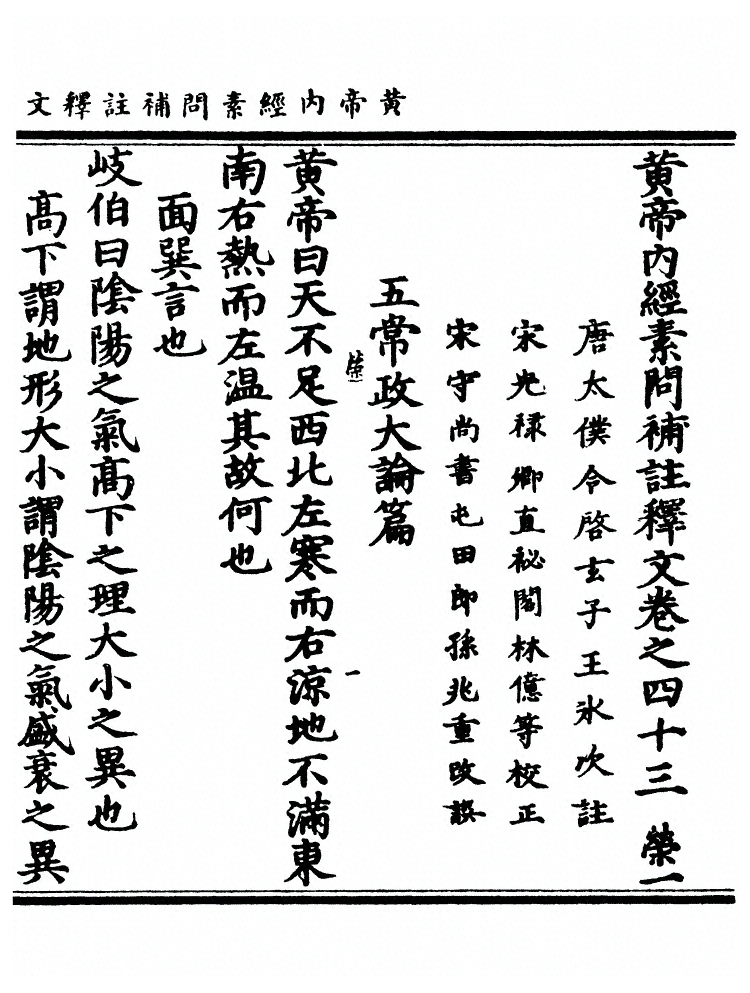 黄帝內經素問補註釋文
黄帝內經素問補註釋文卷之四十三 榮一
唐太僕令啓玄子王冰次註
宋光禄卿直祕閣林億等校正
宋守尚書屯田郎孫兆重改誤
五常政大論篇
榮一
一
黄帝曰天不足西北左寒而右涼地不滿東
南右熱而左温其故何也
面巽言也
岐伯曰陰陽之氣髙下之理大小之異也
髙下謂地形大小謂陰陽之氣盛衰之異